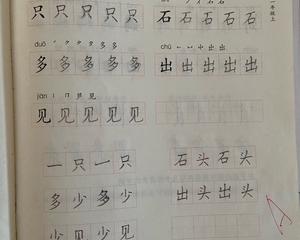 一年级上
只只只只只
石石石石石
duō
多多多多多
chū
出出出出出
jiàn
见见见见见
一只一只
石头石头
多少多少
出头出头
少见少见